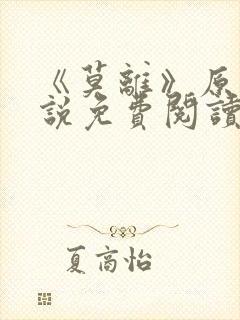 《莫離》原
說免費閱讀
夏高怡